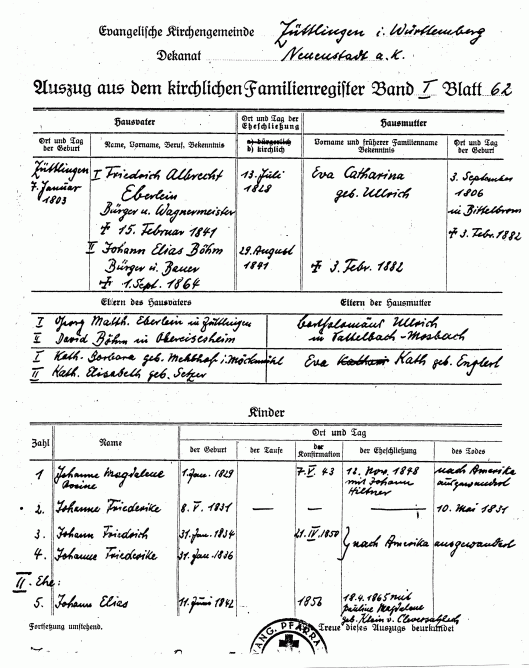 Evangelische Kirchengemeinde Züttlingen i. Württemberg
Dekanat Neuenstadt a. K.
Auszug aus dem kirchlichen Familienregister Band I Blatt 62
Hausvater
Ort und Tag der Eheschließung
Hausmutter
Ort und Tag der Geburt
Name, Vorname, Beruf, Bekenntnis
a) bürgerlich
b) kirchlich
Vorname und früherer Familienname
Bekenntnis
Ort und Tag der Geburt
Züttlingen I Friedrich Albrecht 13. Juli Eva Catharina 3. September
7. Januar Eberlein 1828 geb. Ullrich 1806
1803 Bürger u. Wagnermeister in Bittelbronn
+ 15. Februar 1841 + 3. Febr. 1882
II Johann Elias Böhm 29. August
Bürger u. Bauer 1841 + 3. Febr. 1882
+ 1. Sept. 1864
Eltern des Hausvaters Eltern der Hausmutter
I Georg Matth. Eberlein in Züttlingen Bartholomäus Ullrich
II David Böhm in Obereisesheim in Vattelbach-Mosbach
I Kath. Barbara geb. i. Möckmühl Eva Kath geb. Englert
II Kath. Elisabeth geb. Setzer
Kinder
Zahl Name Ort und Tag
der Geburt der Taufe der Konfirmation der Eheschließung des Todes
1 Johanne Magdalene 1. Jan. 1829 7. V. 43 12. Nov. 1848 nach Amerika
Rosine mit Johann ausgewandert
Hiltner
2. Johanne Friederike 8. V. 1831 — — — 10. Mai 1831
3. Johann Friedrich 31. Jan. 1834 21. IV. 1850
nach Amerika ausgewandert
4. Johanne Friederike 31. Jan. 1836
II. Ehe:
5. Johann Elias 11. Juni 1842 1856 18.4.1865 mit
Pauline Magdalene
geb. Klein v. Cleversulzbach
Fortsetzung umstehend. Treue dieses Auszugs beurkundet
EVANG. PFARRA